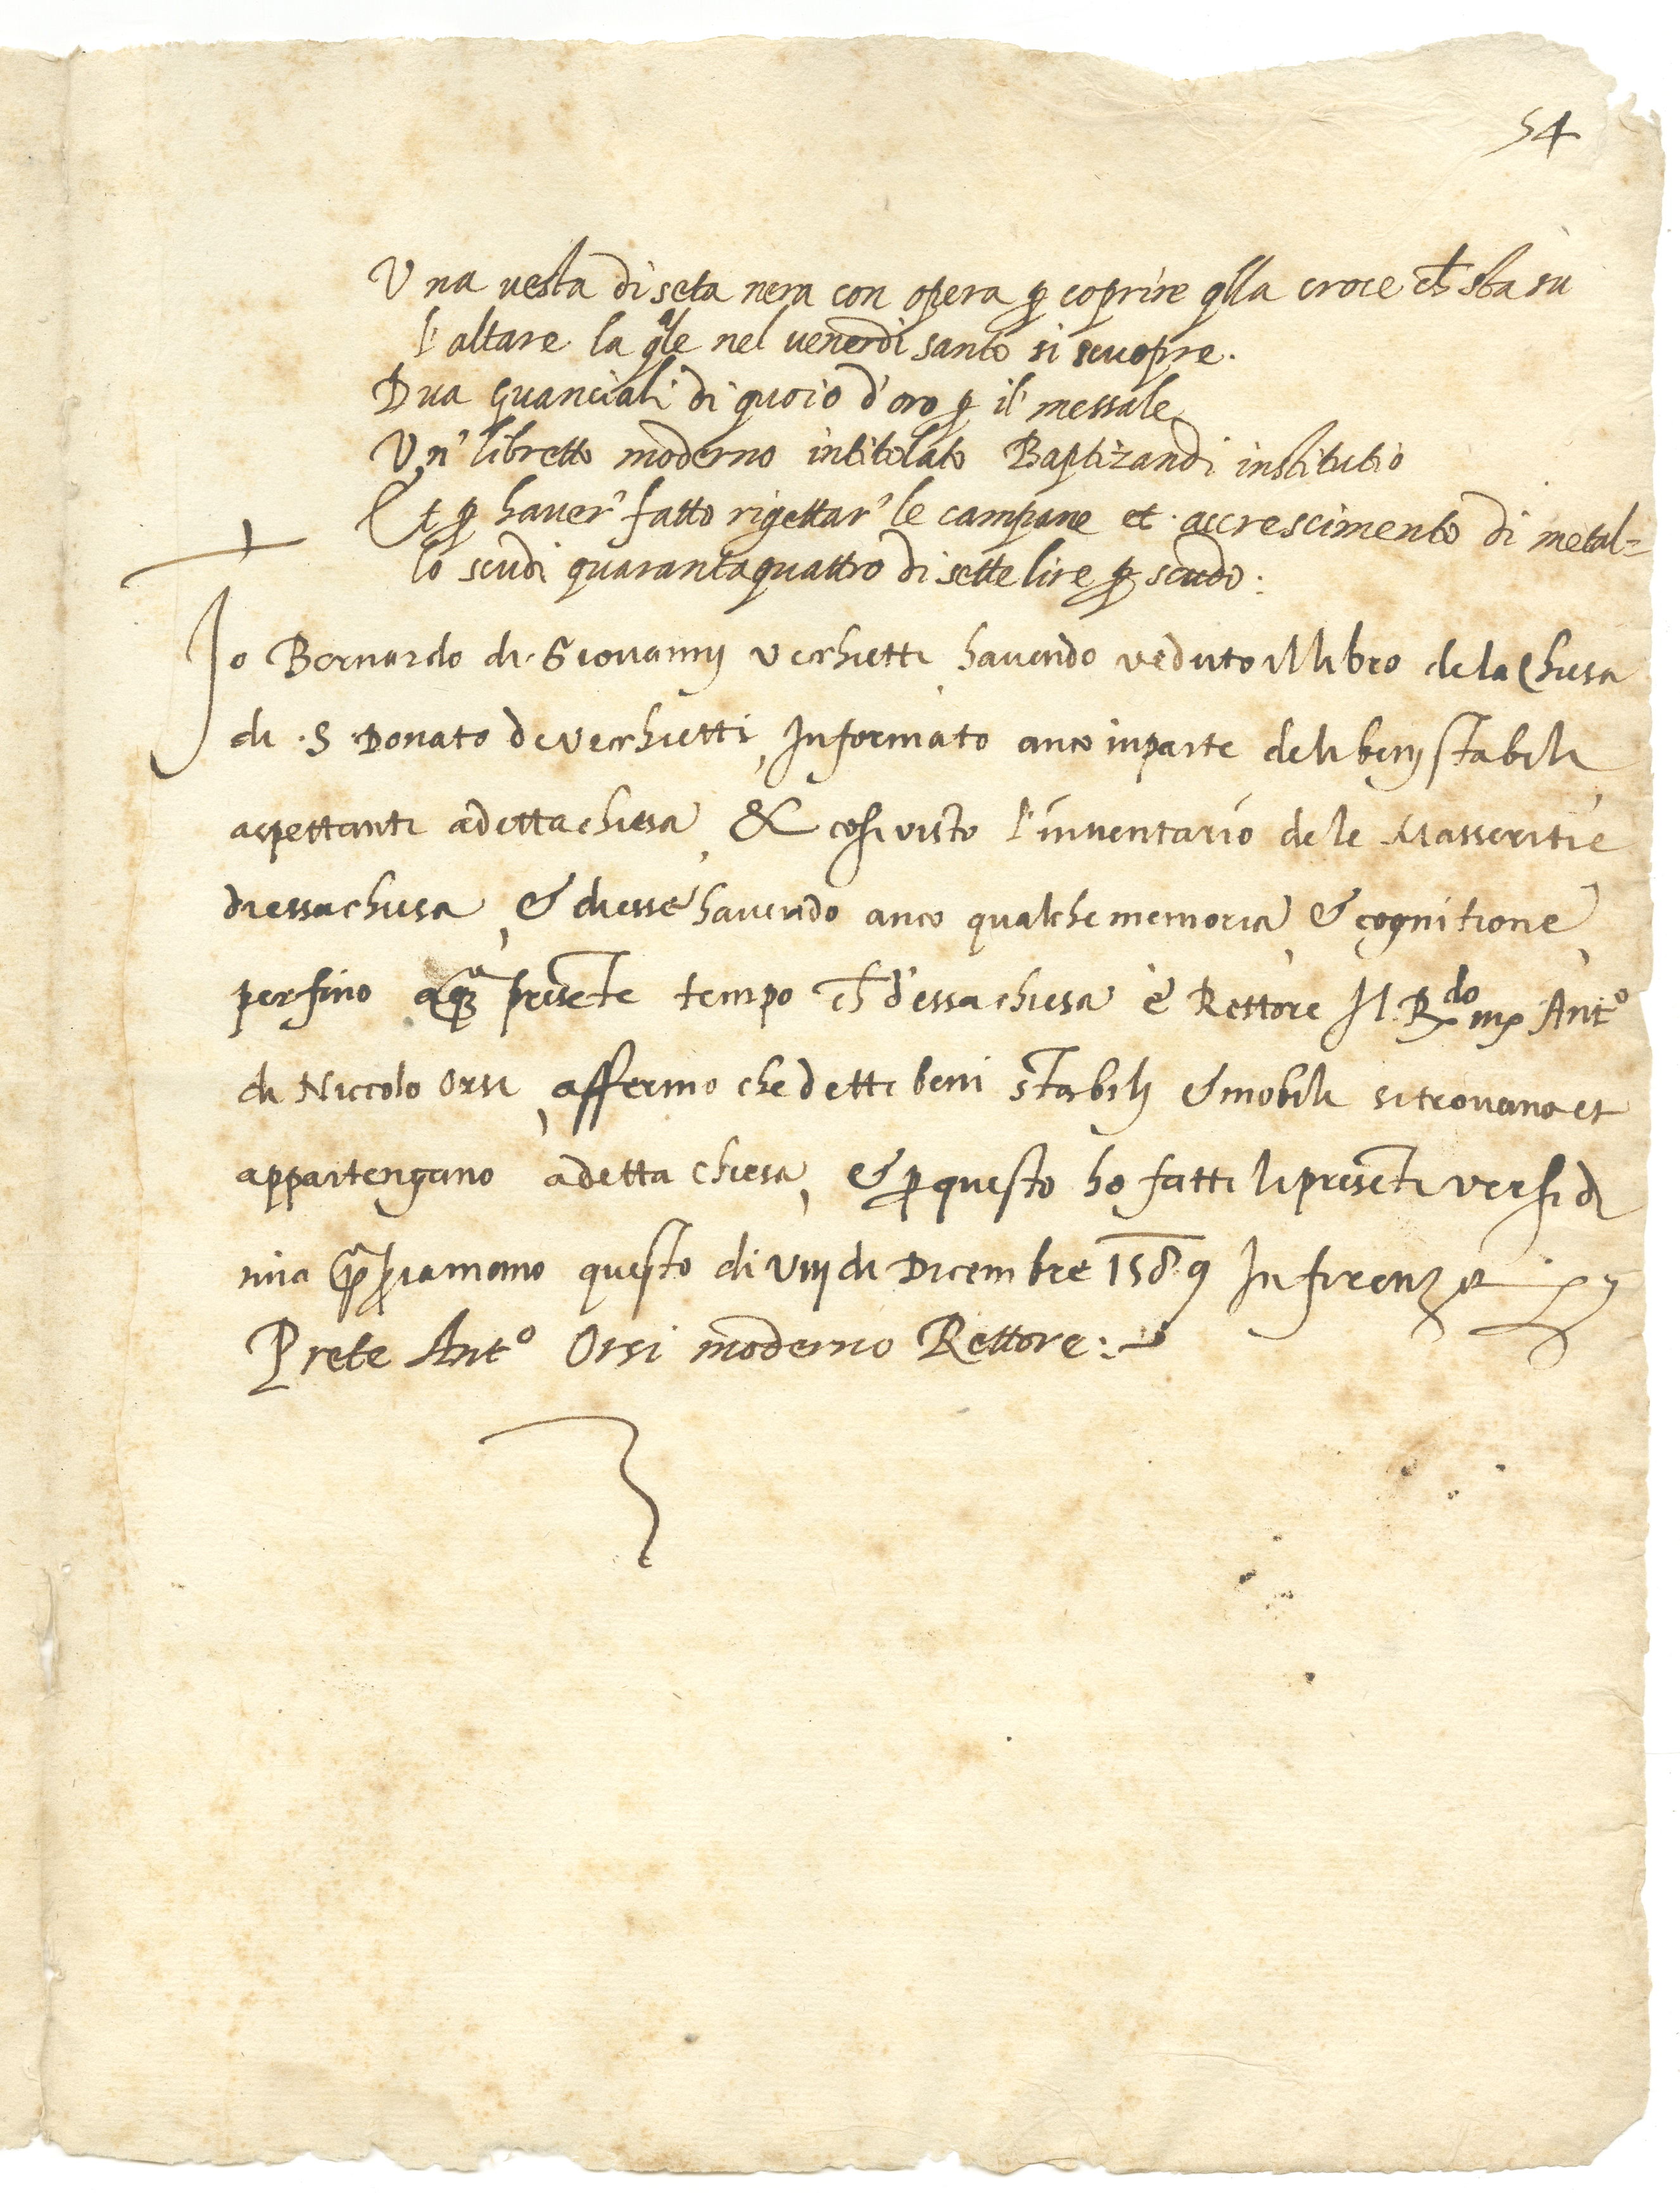 54
Una vesta di seta nera con opera p coprire qlla croce ch sta sù
l'altare la qle nel venerdi santo si scuopre.
Dua guanciali di quoio d'oro p il messale
Un' libretto moderno intitolato Baptizandi institutio
Et p haver' fatto rigettar' le campane et accrescimento di metal=
lo scudi quarantaquattro di sette lire p scudo:
Io Bernardo di Giovannj Vecchietti havendo veduto il libro de la Chiesa
di S. Donato de Vecchietti, Informato anco in parte de li benj stabili
aspettanti a detta chiesa, & cosi visto l'inventario de le Masseritie
di essa chiesa, & di esse havendo anco qualche memoria, & cognitione,
per fino a presēte tempo ch d'essa chiesa è Rettore Il R.do m Ant.o
di Niccolo Orsi, affermo che detti beni stabilj & mobili si trovano et
appartengano a detta chiesa, & p questo ho fatti li presēti versi di
mia ppria mano questo di viij di Dicembre 1589 In firenze
Prete Ant.o Orsi moderno Rettore: